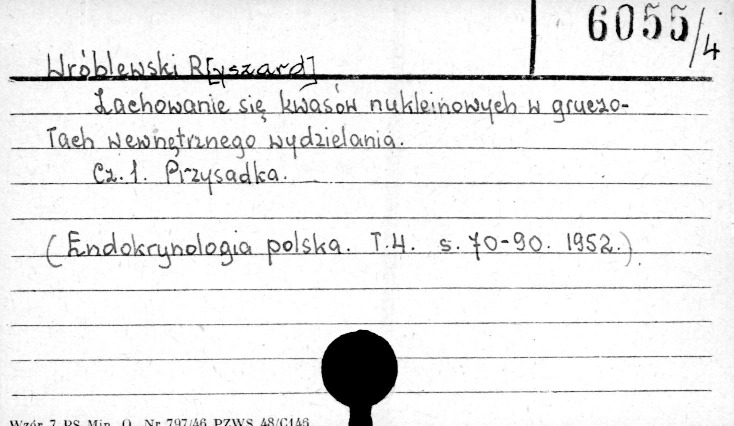 6055/4
Wróblewski R[yszard]
Zachowanie się kwasów nukleinowych w gruczo-
łach wewnętrznego wydzielania.
Cz. 1. Przysadka.
(Endokrynologia polska. T.4. s. 70-90. 1952.)
Wzór 7 PS Min. O. Nr 797/46 PZWS 48/C146